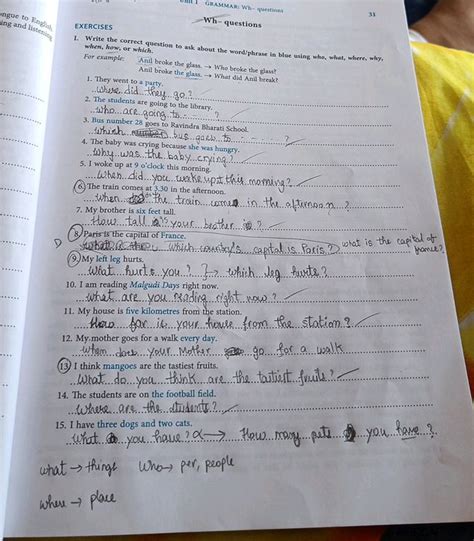 Unit 1 GRAMMAR: Wh- questions
33
ngue to English
ing and listening
Wh- questions
EXERCISES
I. Write the correct question to ask about the word/phrase in blue using who, what, where, why,
when, how, or which.
For example: Anil broke the glass. → Who broke the glass?
Anil broke the glass. → What did Anil break?
1. They went to a party.
where did they go?
2. The students are going to the library.
who are going to - - ?
3. Bus number 28 goes to Ravindra Bharati School.
which bus goes to - - - ?
4. The baby was crying because she was hungry.
Why was the baby crying?
5. I woke up at 9 o'clock this morning.
when did you wake up this morning?
6. The train comes at 3.30 in the afternoon.
when the train come in the afternoon ?
7. My brother is six feet tall.
How tall is your brother is?
8. Paris is the capital of France.
which country's capital is Paris? what is the capital of
france?
9. My left leg hurts.
what hurts you ? } → which leg hurts?
10. I am reading Malgudi Days right now.
what are you reading right now?
11. My house is five kilometres from the station.
How far is your house from the station?
12. My mother goes for a walk every day.
when does your Mother go for a walk
13. I think mangoes are the tastiest fruits.
What do you think are the tastiest fruits?
14. The students are on the football field.
where are the students?
15. I have three dogs and two cats.
what do you have? → How many pets do you have?
what → things who → per, people
where → place